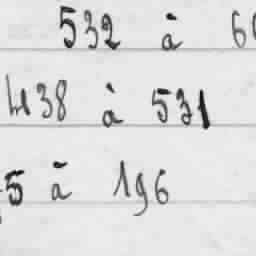 532 à 60
438 à 531
5 à 196